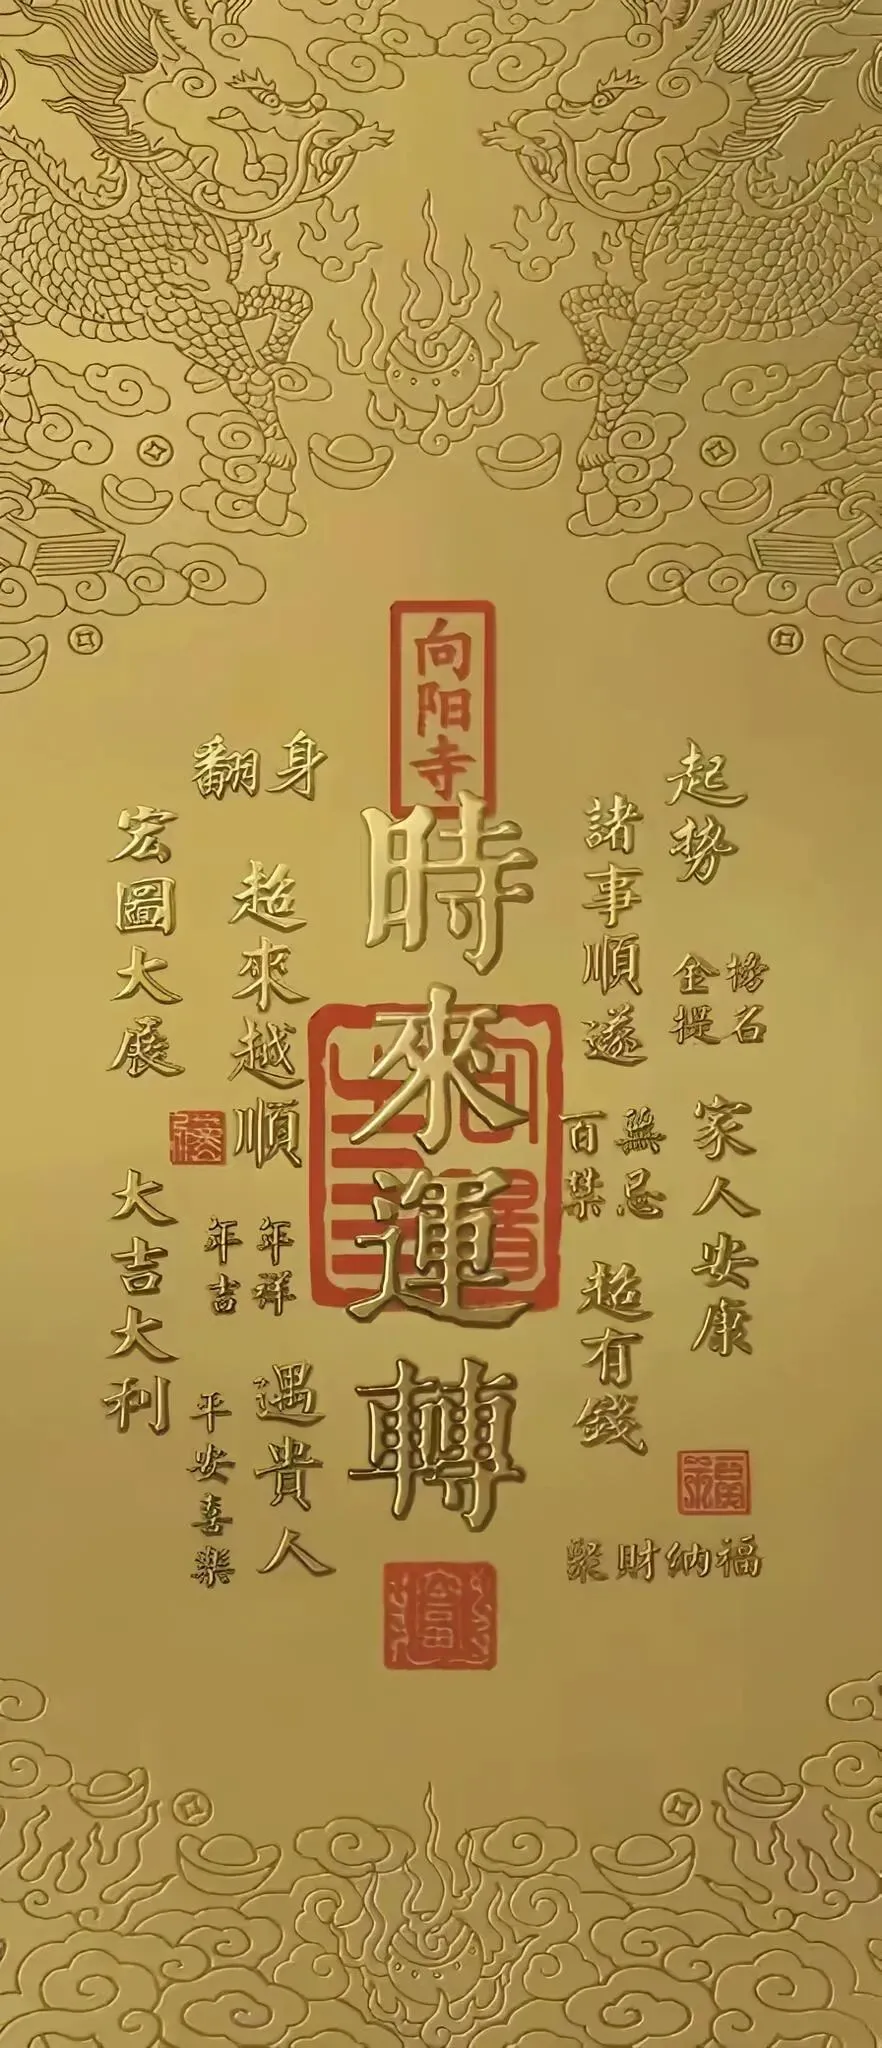 向阳寺
時來運轉
起勢
金榜
提石
家人安康
諸事順遂
百無
禁忌
超有錢
聚財納福
翻身
超來越順
年年
吉祥
遇貴人
平安喜樂
宏圖大展
大吉大利
福